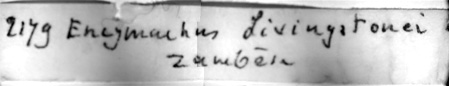 2179 Encymachus Livingstonei
Zambesi